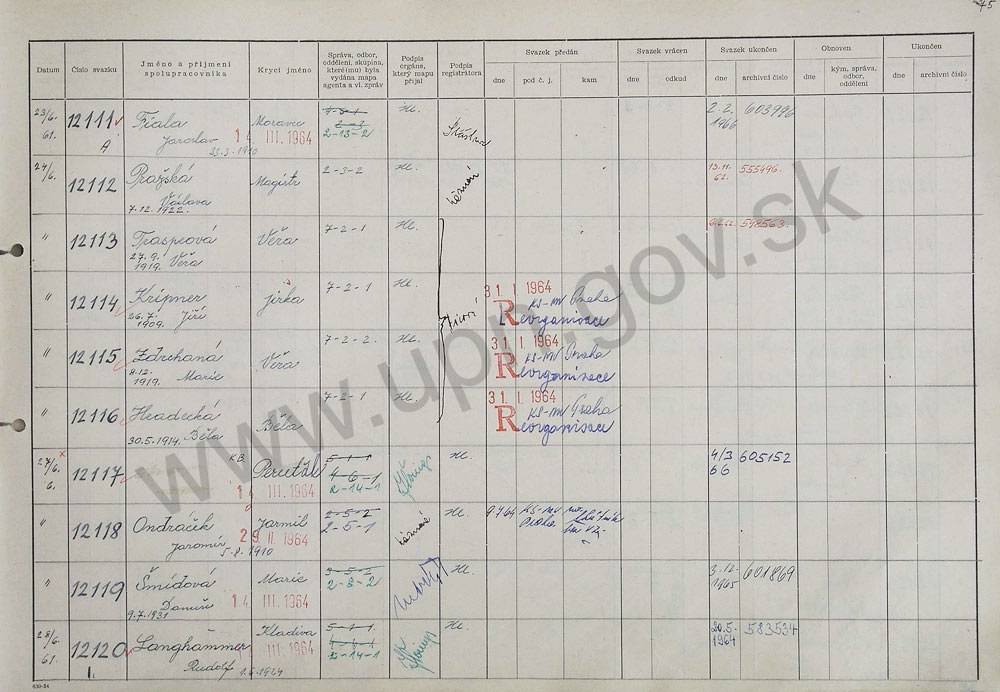 75
Datum
Číslo svazku
Jméno a příjmení
spolupracovníka
Krycí jméno
Správa, odbor,
oddělení, skupina,
které(mu) byla
vydána mapa
agenta a vl. zpráv
Podpis
orgáns,
který mapu
přijal
Podpis
registrátora
Svazek předán
dne
pod č. j.
kam
Svazek vrácen
dne
odkud
Svazek ukončen
dne
archivní číslo
Obnoven
dne
kým, správa,
odbor,
oddělení
Ukončen
dne
archivní číslo
23/6.
61.
12111
A
Fiala
Jaroslav
23.3.1910
Moravec
14 III. 1964
2-13-2
Hl.
2. 2.
1966
603996
24/6.
12112
Pražská
Václava
7.12.1922.
Magistr
2-3-2
Hl.
13.11.
62.
555496.
"
12113
27.9.
1919. Věra
Věra
7-2-1
Hl.
548563.
"
12114
Kripner
26.7.
1909. Jiří
Jirka
7-2-1
Hl.
31 I 1964
KS-MV Praha
Reorganisace
"
12115
Zdrchaná
8.12.
1919. Marie
Věra
7-2-2.
Hl.
31 I. 1964
KS-MV Praha
Reorganisace
"
12116
Hradecká
30.5.1914. Běla
Běla
7-2-1
Hl.
31. I. 1964
KS-MV Praha
Reorganisace
27/6.
6.
12117
KB.
Peruťák
14 III. 1964
5-1-1
4-6-1
2-14-1
Hl.
4/3
66
605152
"
12118
Ondráček
Jaromír
5.8.1910
Jarmil
29 II. 1964
2-5-2
2-5-1
Hl.
KS-MV
Praha
"
12119
Šmídová
9.7.1931
Marie
14 III. 1964
3-5-2
2-8-2
Hl.
3. 12.
1965
601869
28/6.
61.
12120
Langhammer
Rudolf
1.6.1924
Kladiva
III. 1964
5-1-1.
2-14-1
Hl.
20.5.
1964
583534
630-54
www.upn.gov.sk